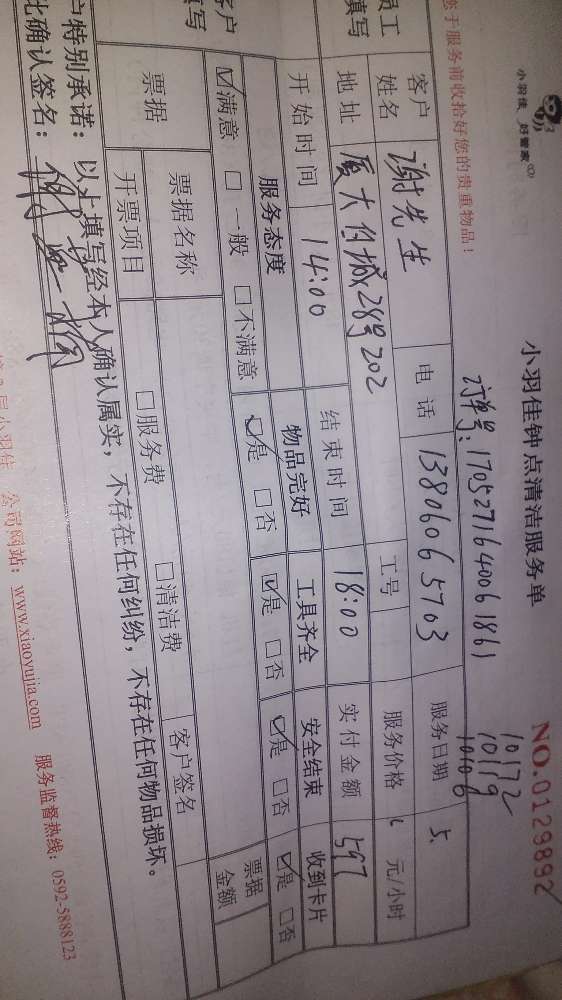 小羽佳 好管家
小羽佳钟点清洁服务单
NO.0129892
订单号:1705271640061861
10172
10119
10106
您于服务前收拾好您的贵重物品!
员工
填写
客户
姓名
谢先生
电话
13806065703
服务日期
5.
地址
厦大
28号202
工号
服务价格
元/小时
开始时间
14:00
结束时间
18:00
实付金额
597
客户
填写
服务态度
物品完好
工具齐全
安全结束
收到卡片
☑满意 □一般 □不满意
☑是 □否
☑是 □否
☑是 □否
☑是 □否
票据
票据名称
客户签名
票据
金额
开票项目
□服务费 □清洁费
户特别承诺:以上填写经本人确认属实,不存在任何纠纷,不存在任何物品损坏。
此确认签名:
小羽佳
公司网站:www.xiaoyujia.com
服务监督热线:0592-5888123